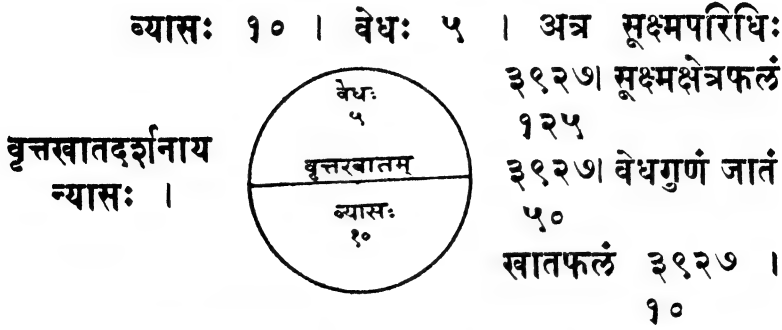 व्यासः १० । वेधः ५ । अत्र सूक्ष्मपरिधिः
३९२७। सूक्ष्मक्षेत्रफलं
१२५
३९२७। वेधगुणं जातं
५०
खातफलं ३९२७ ।
१०
वृत्तखातदर्शनाय
न्यासः ।
वेधः
५
वृत्तखातम्
व्यासः
१०